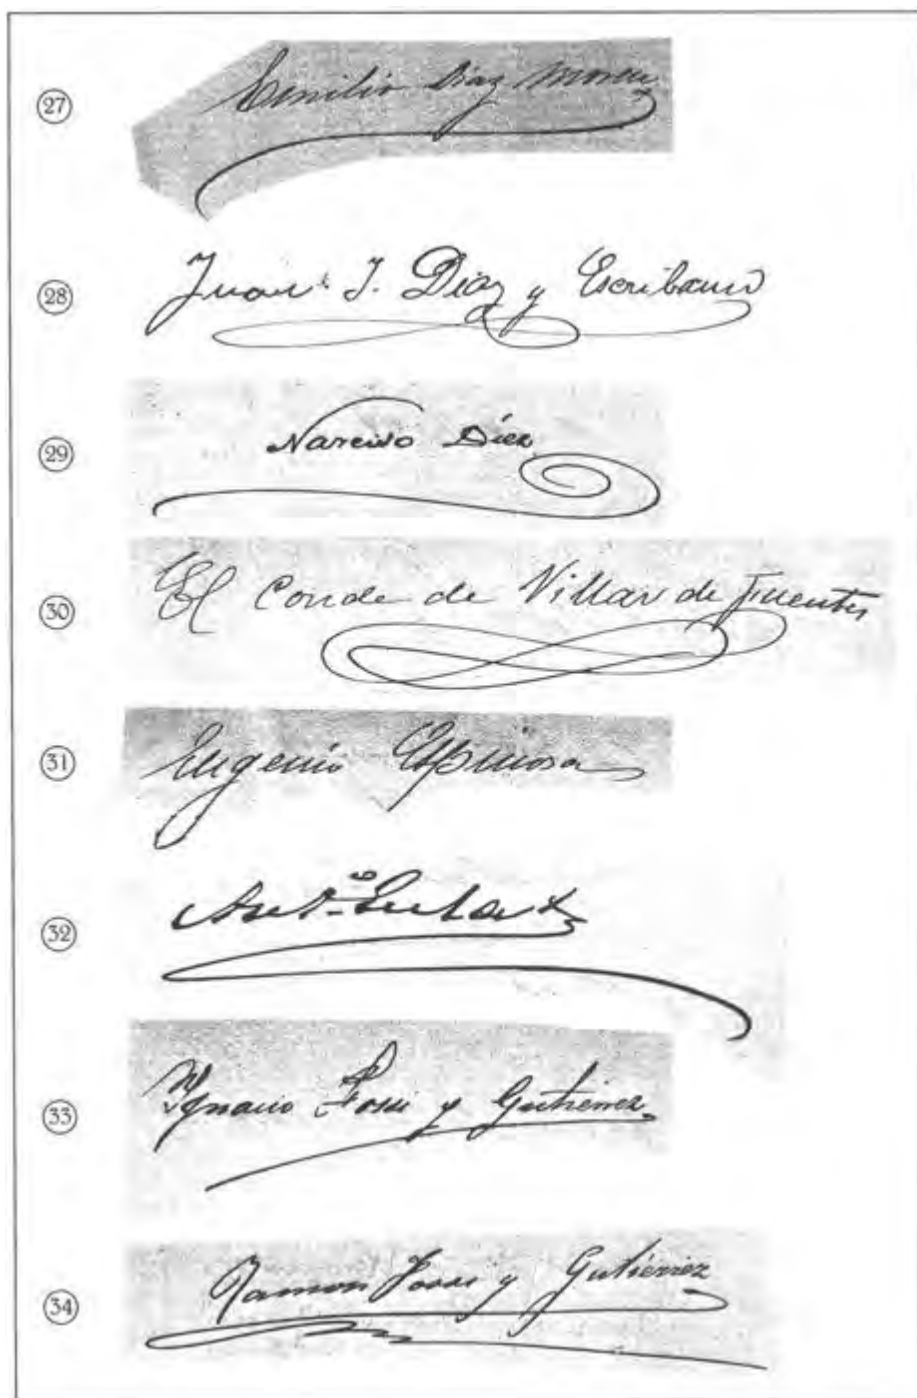 27
Emilio Diaz Moreu
28
Juan J. Diaz y Escribano
29
Narciso Díez
30
El Conde de Villar de Fuentes
31
Eugenio Espinosa
32
33
Ygnacio Fossi y Gutiérrez
34
Ramon Fossi y Gutiérrez